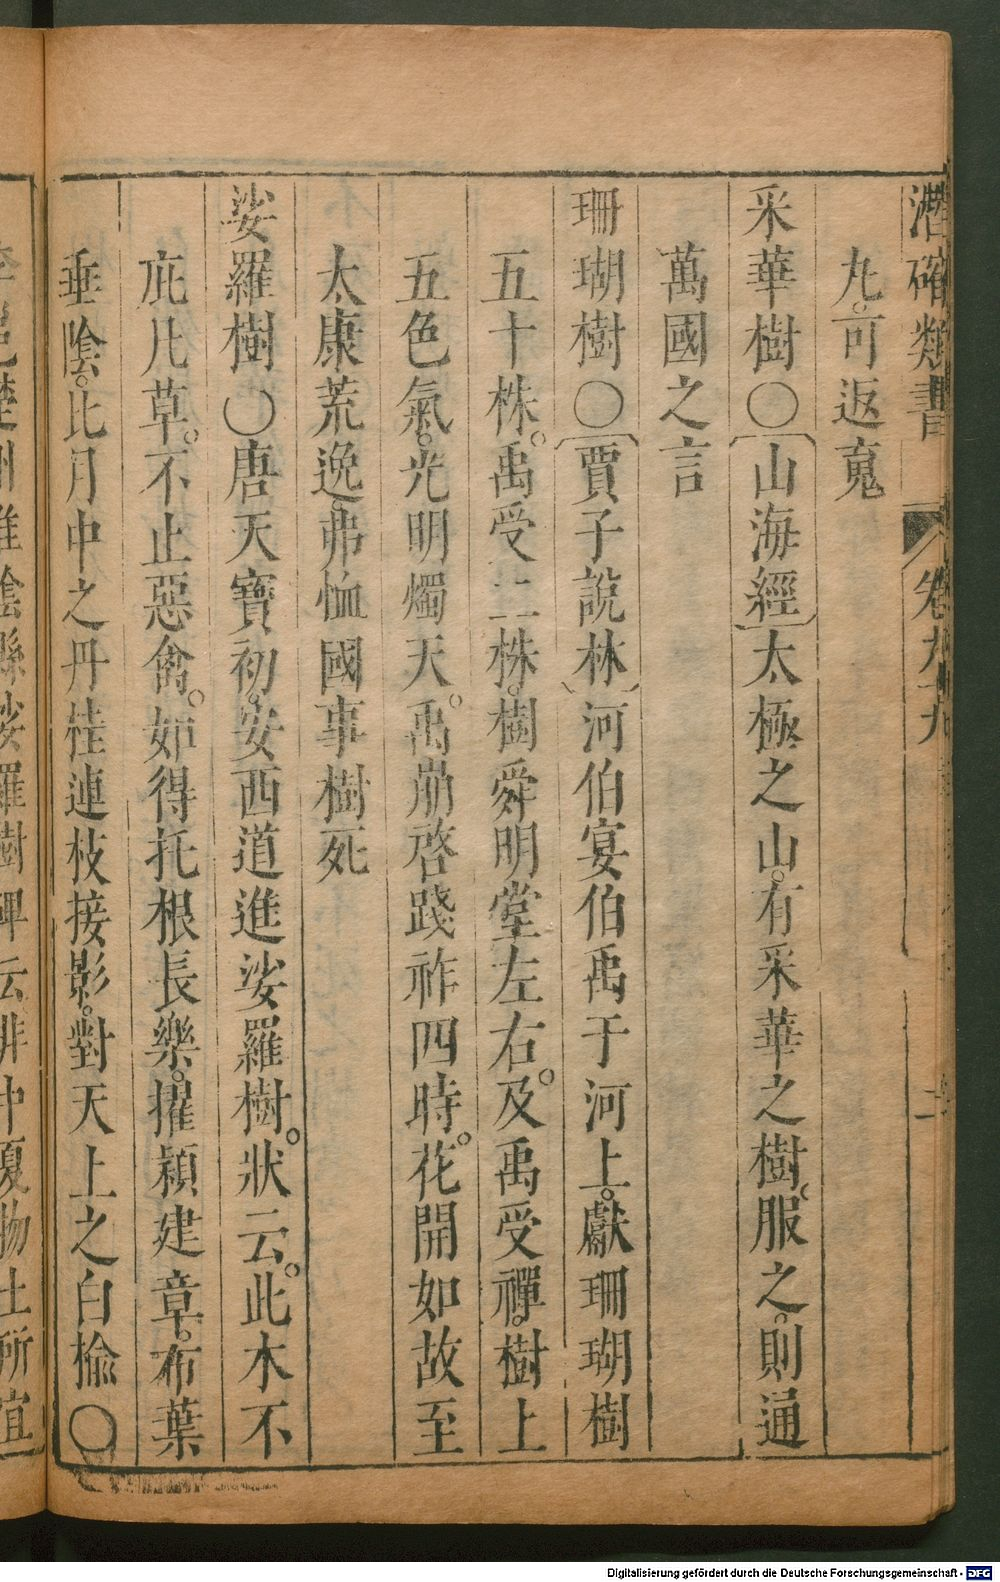 潛確類書 卷九十九 二
丸。可返䰟
采華樹○〔山海經〕太極之山。有采華之樹。服之。則通
萬國之言
珊瑚樹○〔賈子說林〕河伯宴伯禹于河上。獻珊瑚樹
五十株。禹受二株。樹舜明堂左右。及禹受禪。樹上
五色氣。光明燭天。禹崩啓踐祚四時。花開如故至
太康荒逸。弗恤國事樹死
娑羅樹○唐天寶初。安西道進娑羅樹。狀云。此木不
庇凡草。不止惡禽。如得托根長樂。擢穎建章。布葉
垂陰。比月中之丹桂連枝接影。對天上之白榆○
李邕楚州淮陰縣娑羅樹碑云非中夏物土所宜
Digitalisierung gefördert durch die Deutsche Forschungsgemeinschaft - DFG